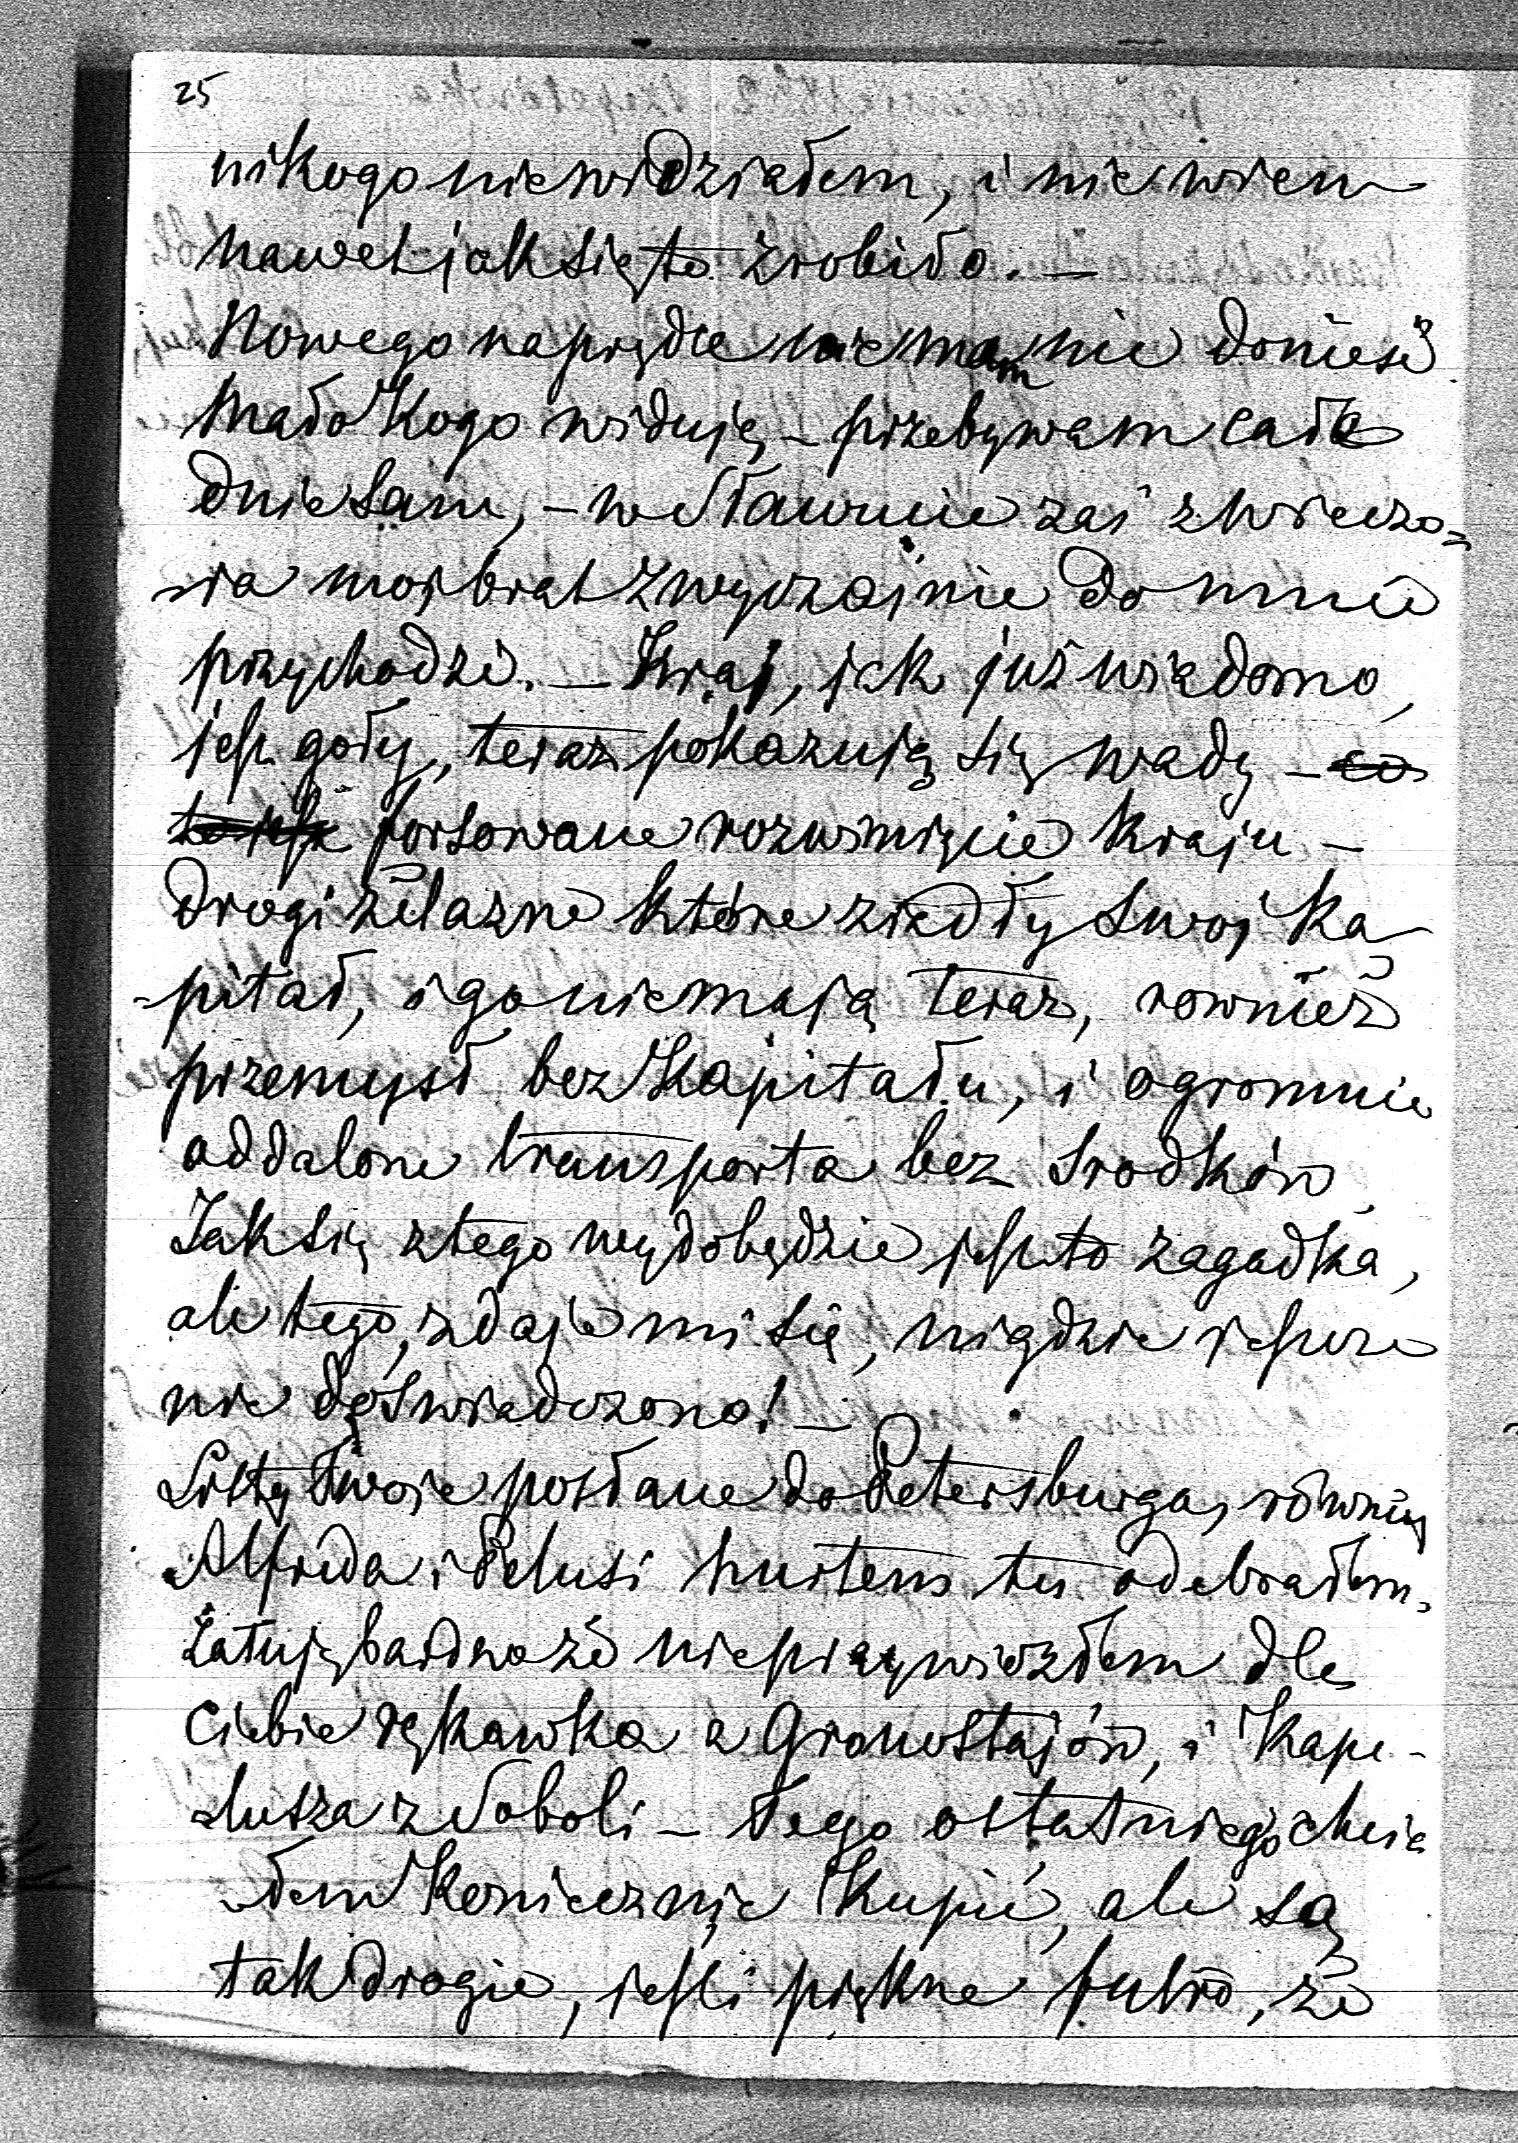 25
nikogo niewidziałem, i nie wiem
nawet jak się to zrobiło. —
Nowego naprędce nie mam nic donieść
mało kogo widuję – przebywam całe
dnie sam, – w Sławucie zaś z wieczo=
-ra moj brat zwyczajnie do mnie
przychodzi. — Kraj, jak już wiadomo,
jest goły, teraz pokazują się wady – co
to jest forsowane rozwinięcie kraju –
drogi żelazne które ziadły swoj ka-
-pitał, i go nie mają teraz, rownież
przemysł bez kapitału, i ogromnie
oddalone transporta bez srodków,
Jak się z tego wydobędzie jest to zagadka,
ale tego, zdaje mi się, nigdzie jeszcze
nie doświadczono! —
Listy Twoje posłane do Petersburga, równiez
Alfreda i Pelusi hurtem tu odebrałem.
Żałuję bardzo że nieprzywiozłem dla
Ciebie rękawka z Gronostajów, i Kape-
-lusza z Soboli – Tego ostatniego chcia
-łem koniecznie kupić, ale są
tak drogie, jesli piękne futro, że